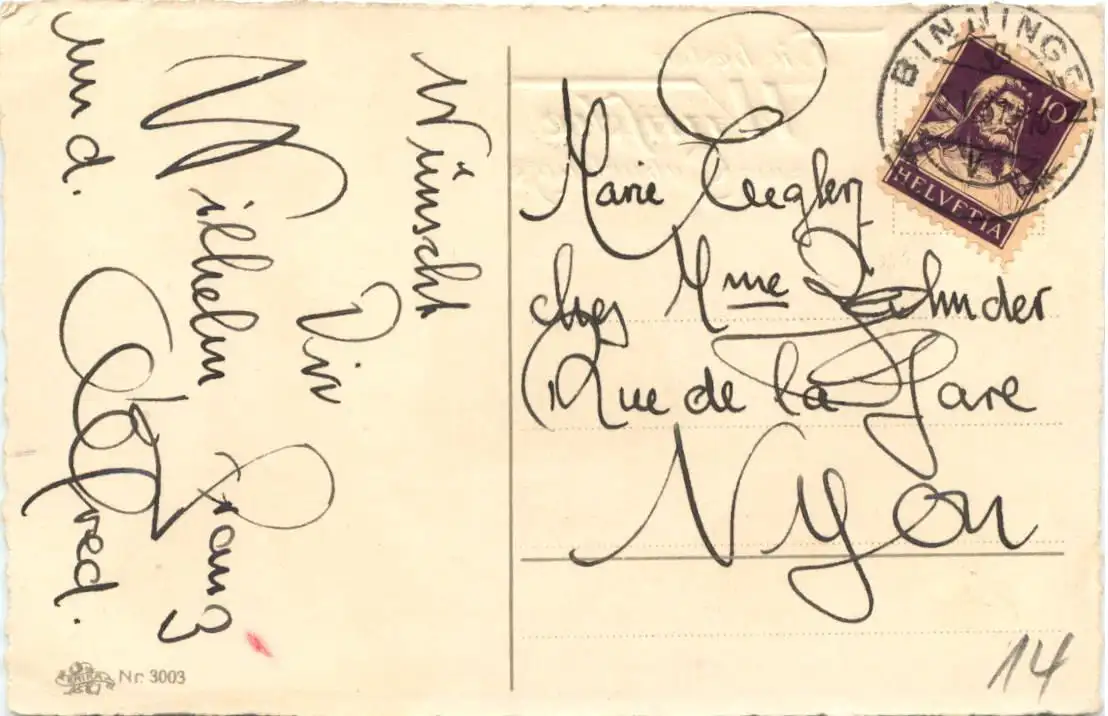 Wünscht
Dir
Wilhelm Franz
und. Alfred.
Marie
chez Mme Zehnder
Rue de la Gare
Nyon
BINNINGEN
10
HELVETIA
14
Nr. 3003